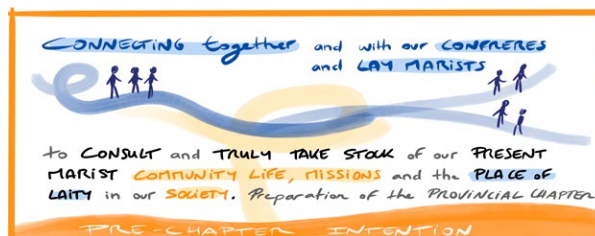 CONNECTING together and with our CONFRERES
and LAY MARISTS
to CONSULT and TRULY TAKE STOCK of our PRESENT
MARIST COMMUNITY LIFE, MISSIONS and the PLACE OF
LAITY in our SOCIETY. Preparation of the PROVINCIAL CHAPTER
PRE-CHAPTER INTENTION